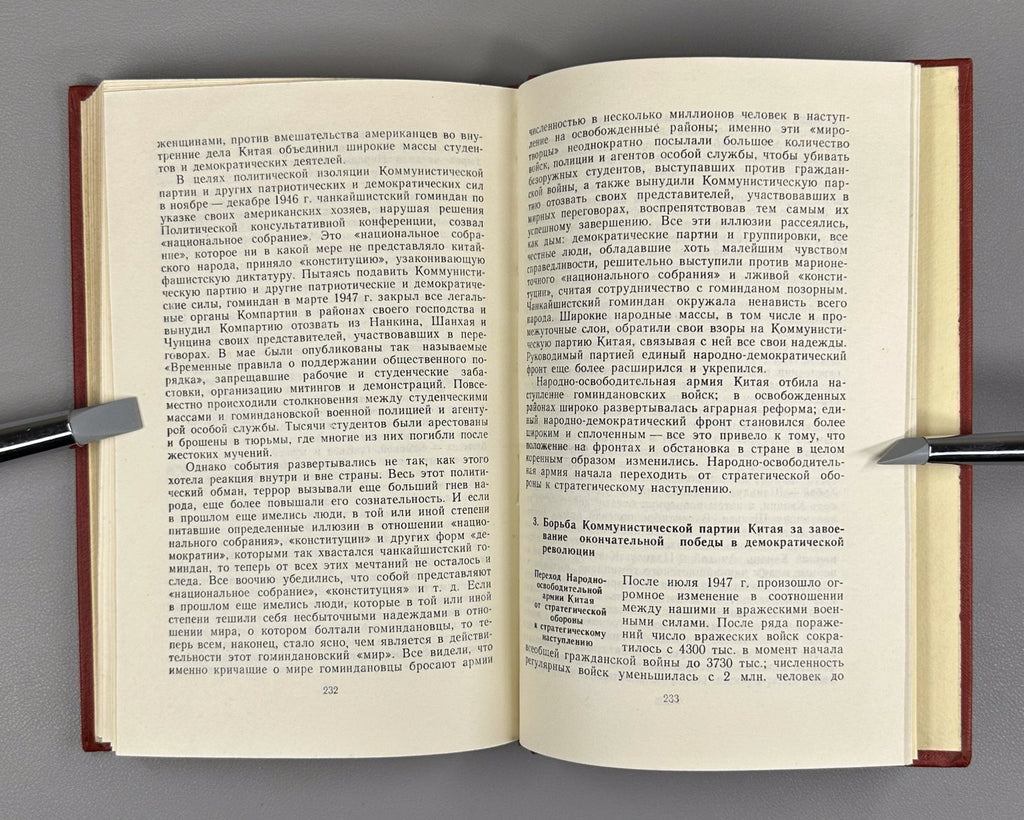 женщинами, против вмешательства американцев во вну-
тренние дела Китая объединил широкие массы студен-
тов и демократических деятелей.
В целях политической изоляции Коммунистической
партии и других патриотических и демократических сил
в ноябре — декабре 1946 г. чанкайшистский гоминдан по
указке своих американских хозяев, нарушая решения
Политической консультативной конференции, созвал
«национальное собрание». Это «национальное собра-
ние», которое ни в какой мере не представляло китай-
ского народа, приняло «конституцию», узаконивающую
фашистскую диктатуру. Пытаясь подавить Коммунисти-
ческую партию и другие патриотические и демократиче-
ские силы, гоминдан в марте 1947 г. закрыл все легаль-
ные органы Компартии в районах своего господства и
вынудил Компартию отозвать из Нанкина, Шанхая и
Чунцина своих представителей, участвовавших в пере-
говорах. В мае были опубликованы так называемые
«Временные правила о поддержании общественного по-
рядка», запрещавшие рабочие и студенческие заба-
стовки, организацию митингов и демонстраций. Повсе-
местно происходили столкновения между студенческими
массами и гоминдановской военной полицией и агенту-
рой особой службы. Тысячи студентов были арестованы
и брошены в тюрьмы, где многие из них погибли после
жестоких мучений.
Однако события развертывались не так, как этого
хотела реакция внутри и вне страны. Весь этот полити-
ческий обман, террор вызывали еще больший гнев на-
рода, еще более повышали его сознательность. И если
в прошлом еще имелись люди, в той или иной степени
питавшие определенные иллюзии в отношении «нацио-
нального собрания», «конституции» и других форм «де-
мократии», которыми так хвастался чанкайшистский го-
миндан, то теперь от всех этих мечтаний не осталось и
следа. Все воочию убедились, что собой представляют
«национальное собрание», «конституция» и т. д. Если
в прошлом еще имелись люди, которые в той или иной
степени тешили себя несбыточными надеждами в отно-
шении мира, о котором болтали гоминдановцы, то те-
перь всем, наконец, стало ясно, чем является в действи-
тельности этот гоминдановский «мир». Все видели, что
именно кричащие о мире гоминдановцы бросают армии
232
численностью в несколько миллионов человек в наступ-
ление на освобожденные районы; именно эти «миро-
творцы» неоднократно посылали большое количество
войск, полиции и агентов особой службы, чтобы убивать
безоружных студентов, выступавших против граждан-
ской войны, а также вынудили Коммунистическую пар-
тию отозвать своих представителей, участвовавших в
мирных переговорах, воспрепятствовав тем самым их
успешному завершению. Все эти иллюзии рассеялись,
как дым: демократические партии и группировки, все
честные люди, обладавшие хоть малейшим чувством
справедливости, решительно выступили против марионе-
точного «национального собрания» и лживой «консти-
туции», считая сотрудничество с гоминданом позорным.
Чанкайшистский гоминдан окружала ненависть всего
народа. Широкие народные массы, в том числе и про-
межуточные слои, обратили свои взоры на Коммунисти-
ческую партию Китая, связывая с ней все свои надежды.
Руководимый партией единый народно-демократический
фронт еще более расширился и укрепился.
Народно-освободительная армия Китая отбила на-
ступление гоминдановских войск; в освобожденных
районах широко развертывалась аграрная реформа; еди-
ный народно-демократический фронт становился более
широким и сплоченным — все это привело к тому, что
положение на фронтах и обстановка в стране в целом
коренным образом изменились. Народно-освободитель-
ная армия начала переходить от стратегической обо-
роны к стратегическому наступлению.
3. Борьба Коммунистической партии Китая за завое-
вание окончательной победы в демократической
революции
Переход Народно-
освободительной
армии Китая
от стратегической
обороны
к стратегическому
наступлению
После июля 1947 г. произошло ог-
ромное изменение в соотношении
между нашими и вражескими воен-
ными силами. После ряда пораже-
ний число вражеских войск сокра-
тилось с 4300 тыс. в момент начала
всеобщей гражданской войны до 3730 тыс.; численность
регулярных войск уменьшилась с 2 млн. человек до
233